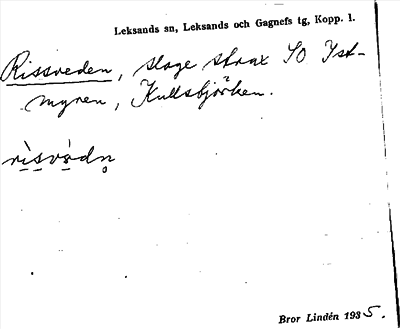 Leksands sn, Leksands och Gagnefs tg, Kopp. l.
Rissveden, slage strax SO Yst-
myren, Kullsbjörken.
rìsvàdn̥
Bror Lindén 1935.